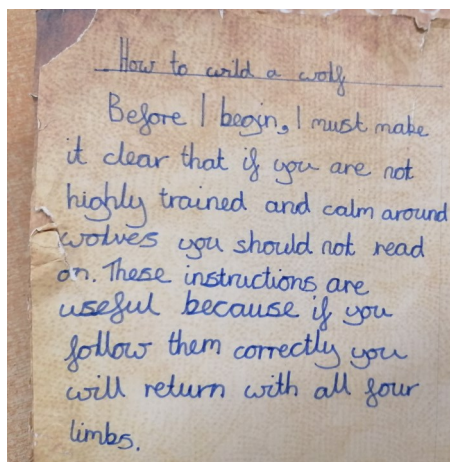 How to wild a wolf
Before I begin, I must make
it clear that if you are not
highly trained and calm around
wolves you should not read
on. These instructions are
useful because if you
follow them correctly you
will return with all four
limbs.